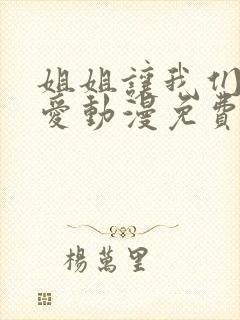 姐姐讓我们
愛動漫免費
楊萬里